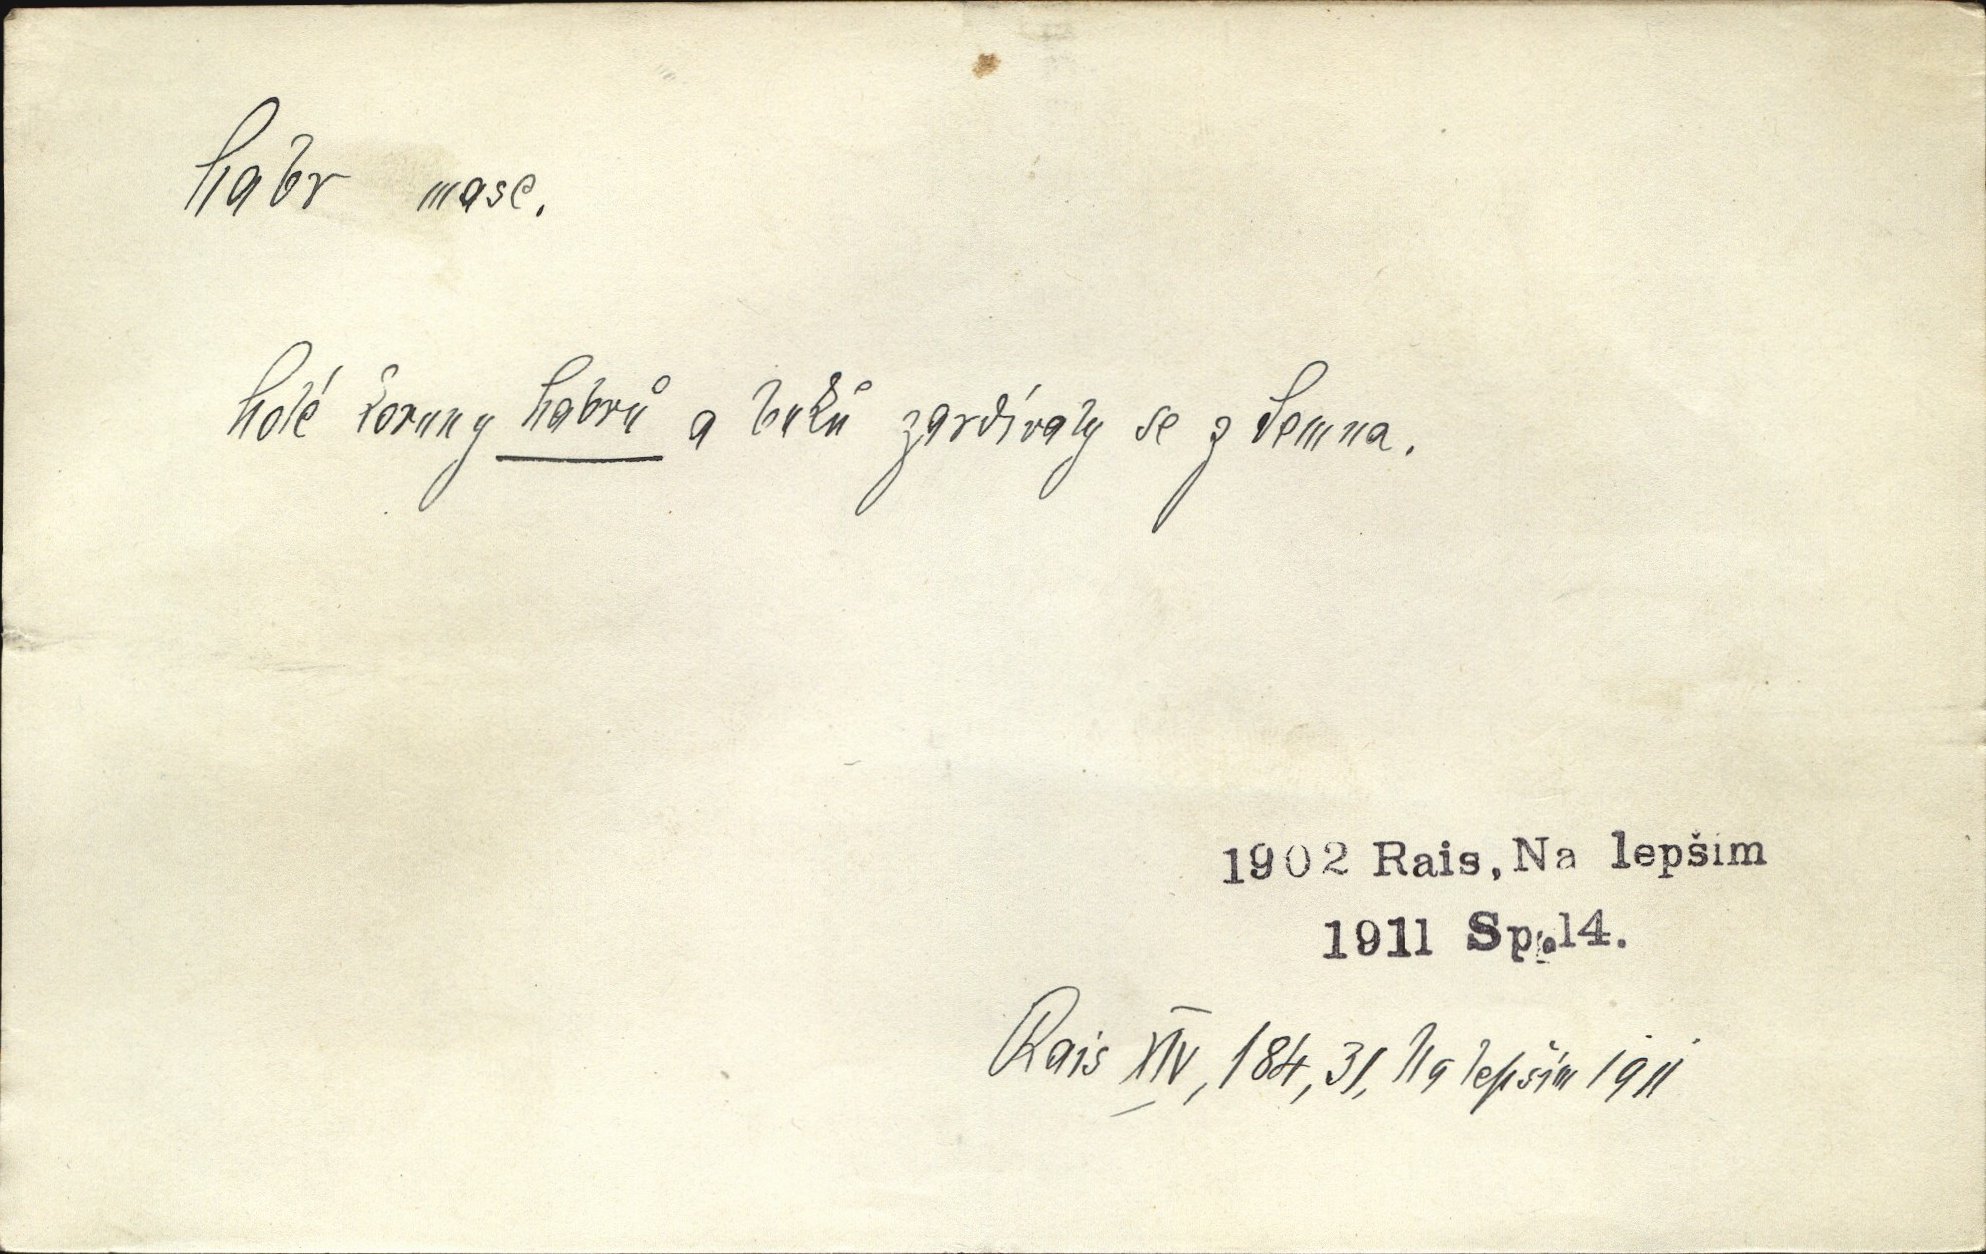 habr masc.
holé koruny habrů a buků zardívaly se z temna.
1902 Rais, Na lepším
1911 Sp. 14.
Rais XIV, 184, 31, Na lepším 1911